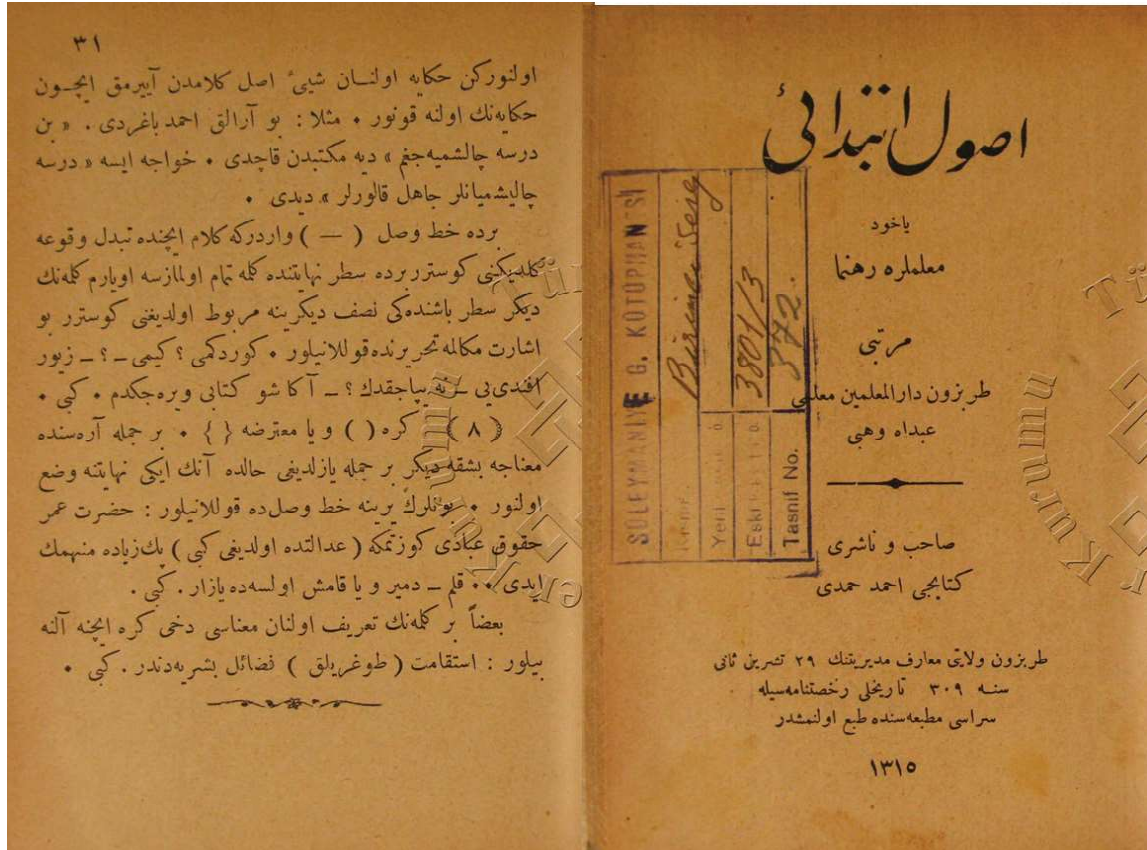 اصول ابتدائی
یاخود
معلملره رهنما
مرتبی
طربزون دارالمعلمین معلمی
عبداه وهبی
صاحب و ناشری
کتابجی احمد حمدی
طربزون ولایتی معارف مدیریتنك ٢٩ تشرین ثانی
سنه ٣٠٩ تاریخلی رخصتنامه‌سیله
سراسی مطبعه‌سنده طبع اولنمشدر
١٣١٥
SÜLEYMANİYE G. KÜTÜPHANESİ
Birinci Serez
Yeni
Eski 3801/3
Tasnif No. 372.
٣١
اولنورکن حکایه اولنان شیئ اصل کلامدن آییرمق ایچون
حکایه‌نك اولنه قونور ٠ مثلا : بو آرالق احمد باغردی . « بن
درسه چالشمیه‌جغم » دیه مکتبدن قاچدی ٠ خواجه ایسه « درسه
چالیشمیانلر جاهل قالورلر » دیدی ٠
برده خط وصل ( — ) واردرکه کلام ایچنده تبدل وقوعه
کلدیکنی کوسترر برده سطر نهایتنده کلمه تمام اولمازسه اویارم کلمه‌نك
دیکر سطر باشنده‌کی نصف دیکرینه مربوط اولدیغنی کوسترر بو
اشارت مکالمه تحریرنده قوللانیلور ٠ کوردکمی ؟ کیمی ــ ؟ ــ زیور
افندی‌یی ــ نه یپاجقدك ؟ ــ آکا شو کتابی ویره‌جکدم ٠ کبی ٠
( ٨ ) کره ( ) و یا معترضه { } ٠ بر جمله آره‌سنده
معناجه بشقه دیکر بر جمله یازلدیغی حالده آنك ایکی نهایتنه وضع
اولنور ٠ بونلرك یرینه خط وصل‌ده قوللانیلور : حضرت عمر
حقوق عبادی کوزتمکه ( عدالتده اولدیغی کبی ) پك زیاده منهمك
ایدی ٠٠ قلم ــ دمیر و یا قامش اولسه‌ده یازار . کبی .
بعضاً بر کلمه‌نك تعریف اولنان معناسی دخی کره ایچنه آلنه
بیلور : استقامت ( طوغریلق ) فضائل بشریه‌دندر . کبی ٠